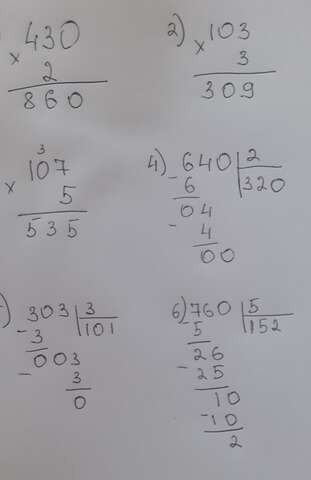 430
× 2
860
2) 103
× 3
309
3
107
× 5
535
4) 640 2
- 6 320
04
- 4
00
) 303 3
- 3 101
003
- 3
0
6) 760 5
- 5 152
26
- 25
10
- 10
2